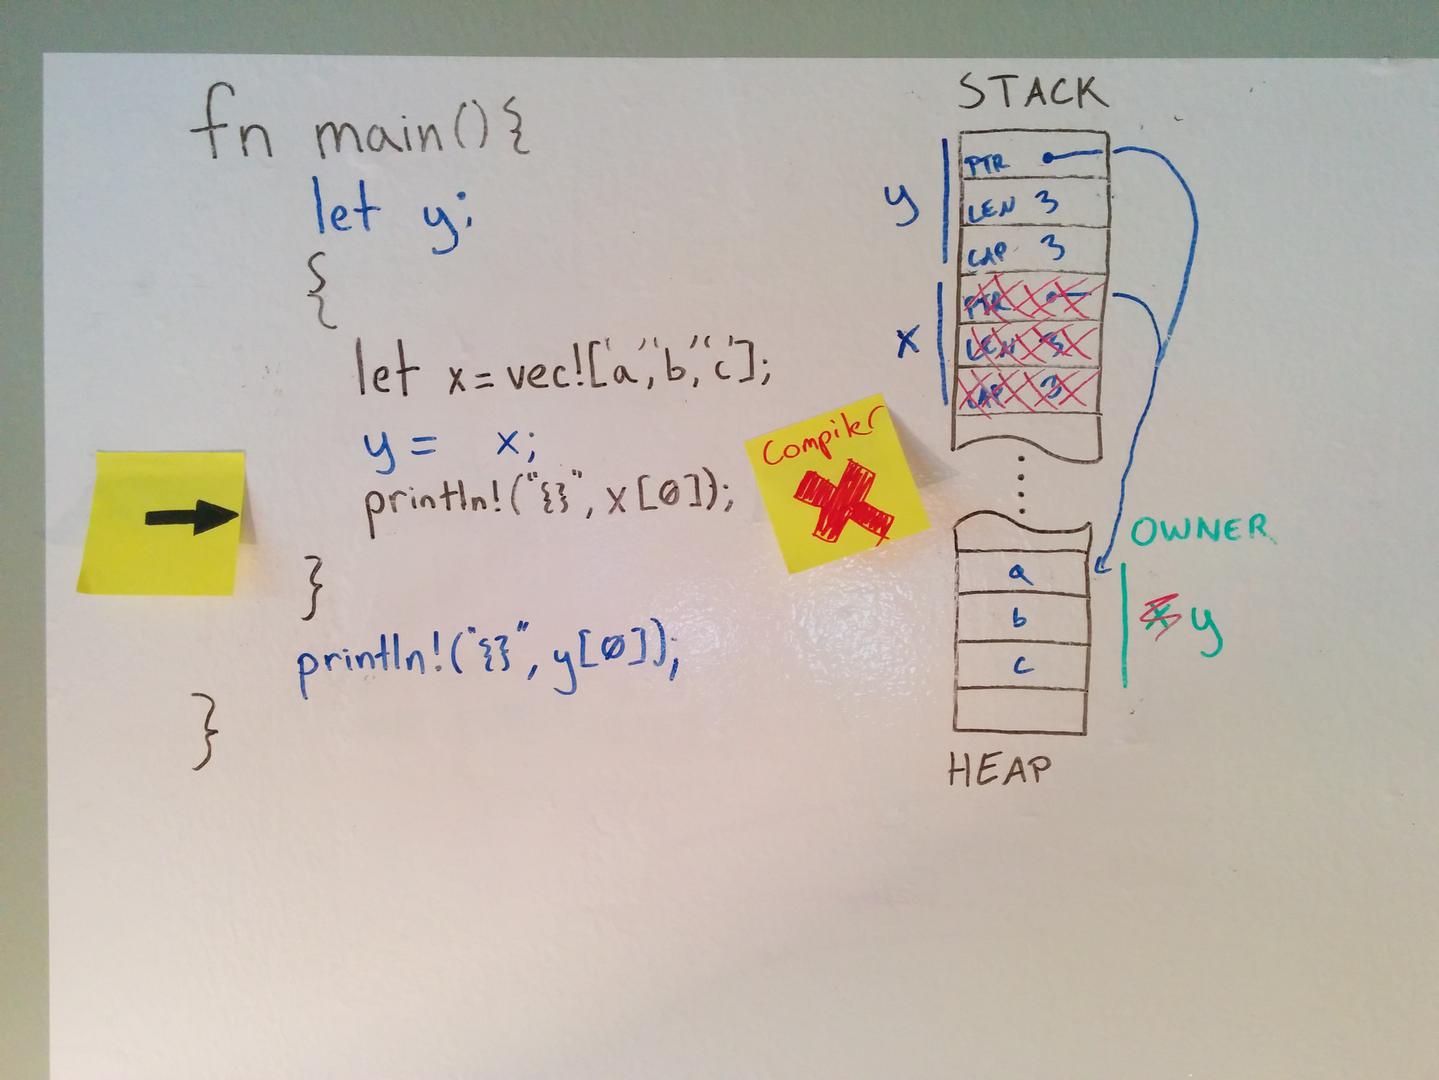 fn main(){
let y;
{
let x=vec!['a','b','c'];
y = x;
println!("{}", x[0]);
}
println!("{}", y[0]);
}
Compiler
STACK
y
PTR
LEN 3
CAP 3
x
PTR
LEN 3
CAP 3
a
b
c
HEAP
OWNER
x y